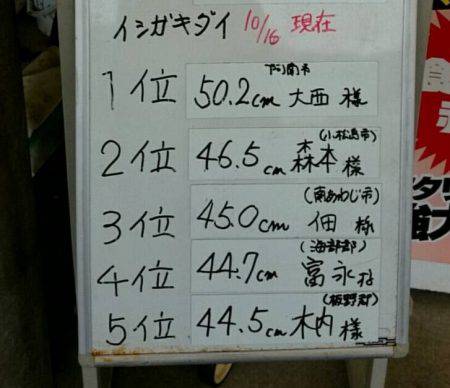 イシガキダイ 10/16 現在
阿南市
1位 50.2cm 大西 様
(小松島市)
2位 46.5cm 森本 様
(南あわじ市)
3位 45.0cm 佃 様
(海部郡)
4位 44.7cm 富永 様
(板野郡)
5位 44.5cm 木内 様